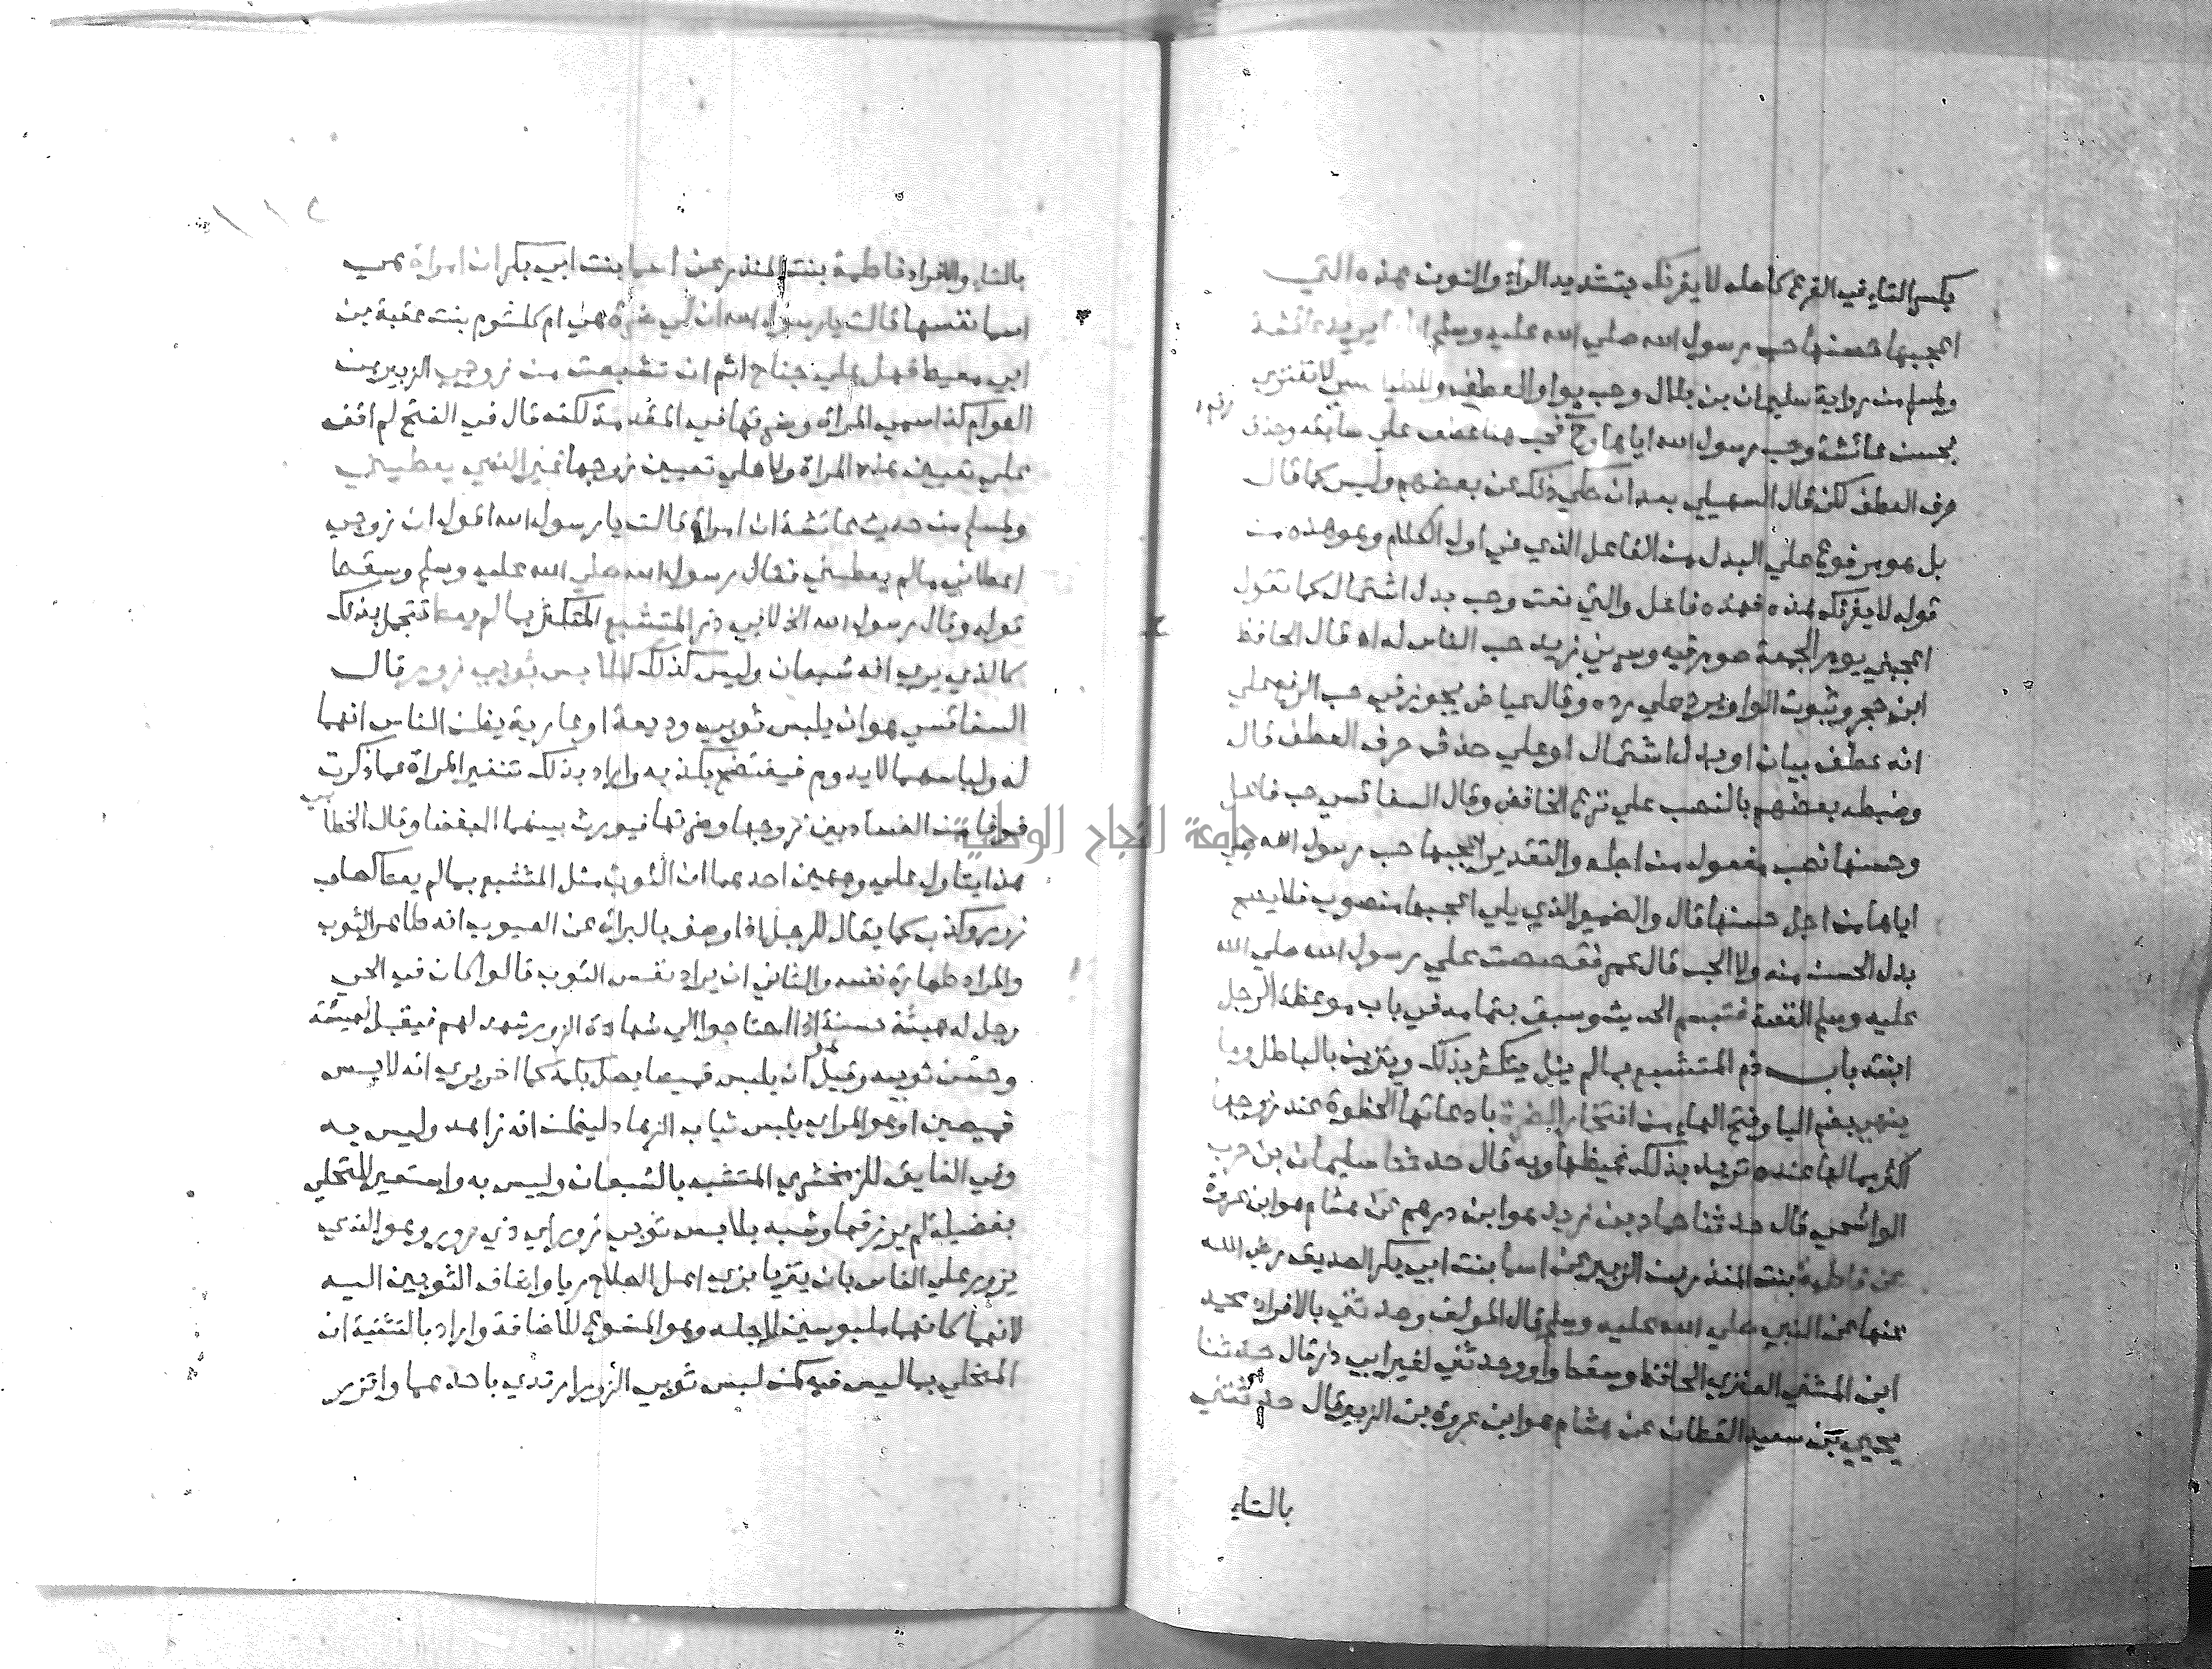 بكسر التاء في الفرع كاصله لا يغرنك بتشديد الراء والنون هذه التي
اعجبها حسنها حب رسول الله صلي الله عليه وسلم اياها يريد عائشة
ولمسلم من رواية سليمان بن بلال وحب بواو العطف وللطيالسي لا تغتري
بحسن عائشة وحب رسول الله اياها وح فحب هنا عطف علي سابقه وحذف
حرف العطف لكن قال السهيلي بعد ان حكي ذلك عن بعضهم وليس كما قال
بل هو مرفوع علي البدل من الفاعل الذي في اول الكلام وهو هذه من
قوله لا يغرنك هذه فهذه فاعل والتي نعت وحب بدل اشتمال كما تقول
اعجبني يوم الجمعة صوم فيه وسرني زيد حب الناس له اه قال الحافظ
ابن حجر وثبوت الواو يرد علي رده وقال عياض يجوز في حب الرفع علي
انه عطف بيان او بدل اشتمال او علي حذف حرف العطف قال
وضبطه بعضهم بالنصب علي نزع الخافض وقال السفاقسي حب فاعل
وحسنها نصب مفعول من اجله والتقدير اعجبها حب رسول الله صلي
اياها من اجل حسنها قال والضمير الذي يلي اعجبها منصوب فلا يصح
بدل الحسن منه ولا الحب قال عمر فقصصت علي رسول الله صلي الله
عليه وسلم القصة فتبسم الحديث وسبق بتمامه في باب موعظة الرجل
ابنته باب ذم المتشبع بما لم ينل يتكثر بذلك ويتزين بالباطل وما
ينهي بضم اليا وفتح الهاء من افتخار الضرة بادعائها الحظوة عند زوجها
اكثر مما لها عنده تريد بذلك غيظها وبه قال حدثنا سليمان بن حرب
الواشحي قال حدثنا حماد بن زيد هو ابن درهم عن هشام هو ابن عروة
عن فاطمة بنت المنذر بن الزبير عن اسما بنت ابي بكر الصديق رضي الله
عنها عن النبي صلي الله عليه وسلم قال المولف وحدثني بالافراد محمد
ابن المثني العنزي الحافظ وسقط واو وحدثني لغير ابي ذر قال حدثنا
يحيي بن سعيد القطان عن هشام هو ابن عروة بن الزبير قال حدثتني
بالتاء
بالتاء والافراد فاطمة بنت المنذر عن اسما بنت ابي بكر ان امراة هي
اسما نفسها قالت يا رسول الله ان لي ضرة هي ام كلثوم بنت عقبة بن
ابي معيط فهل علي جناح اثم ان تشبعت من زوجي الزبير بن
العوام كذا سمي المراة وضرتها في المقدمة لكنه قال في الفتح لم اقف
علي تعيين هذه المراة ولا علي تعيين زوجها غير الذي يعطيني
ولمسلم من حديث عائشة ان امراة قالت يا رسول الله اقول ان زوجي
اعطاني ما لم يعطني فقال رسول الله صلي الله عليه وسلم وسقط
قوله وقال رسول الله الخ لابي ذر المتشبع المتكثر بما لم يعط تتجمل بذلك
كالذي يري انه شبعان وليس كذلك كلابس ثوبي زور قال
السفاقسي هو ان يلبس ثوبي وديعة او عارية يظن الناس انهما
له ولباسهما لا يدوم فيفتضح بكذبه واراد بذلك تنفير المراة عما ذكرت
خوفا من الفساد بين زوجها وضرتها فيورث بينهما البغضا وقال الخطابي
هذا يتاول علي وجهين احدهما ان الثوب مثل المتشبع بما لم يعط كصاحب
زور وكذب كما يقال للرجل اذا وصف بالبراة عن العيوب انه طاهر الثوب
والمراد طهارة نفسه والثاني ان يراد نفس الثوب قالوا كان في الحي
رجل له هيئة حسنة اذا احتاجوا الي شهادة الزور شهد لهم فيقبل لهيئته
وحسن ثوبيه وقيل ان يلبس قميصا يصل بكمه كما اخر يري انه لابس
قميصين او هو المرايي يلبس ثياب الزهاد ليظن انه زاهد وليس به
وفي الفايق للزمخشري المتشبه بالشبعان وليس به واستعير للمتحلي
بفضيلة لم يرزقها وشبه بلابس ثوبي زور اي ذي زور وهو الذي
يزور علي الناس بان يتزيا بزي اهل الصلاح ريا واضاف الثوبين اليه
لانهما كانهما ملبوسين لاجله وهو المسوغ للاضافة واراد بالتثنية ان
المتحلي بما ليس فيه كمن لبس ثوبي الزور ارتدي باحدهما واتزر
جامعة النجاح الوطنية